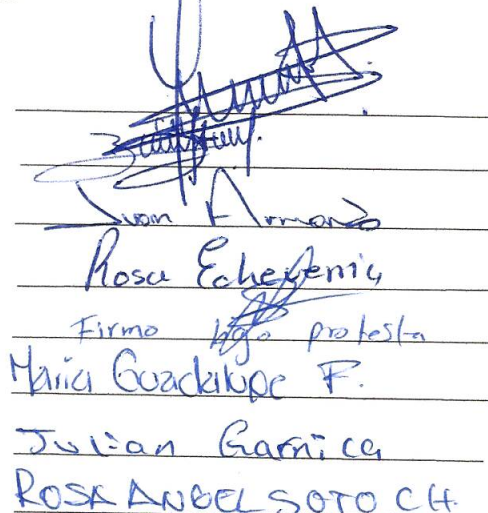 Juan Armando
Rosa Echeverria
Firmo bajo protesta
Maria Guadalupe F.
Julian Garnica
ROSA ANGEL SOTO CH.